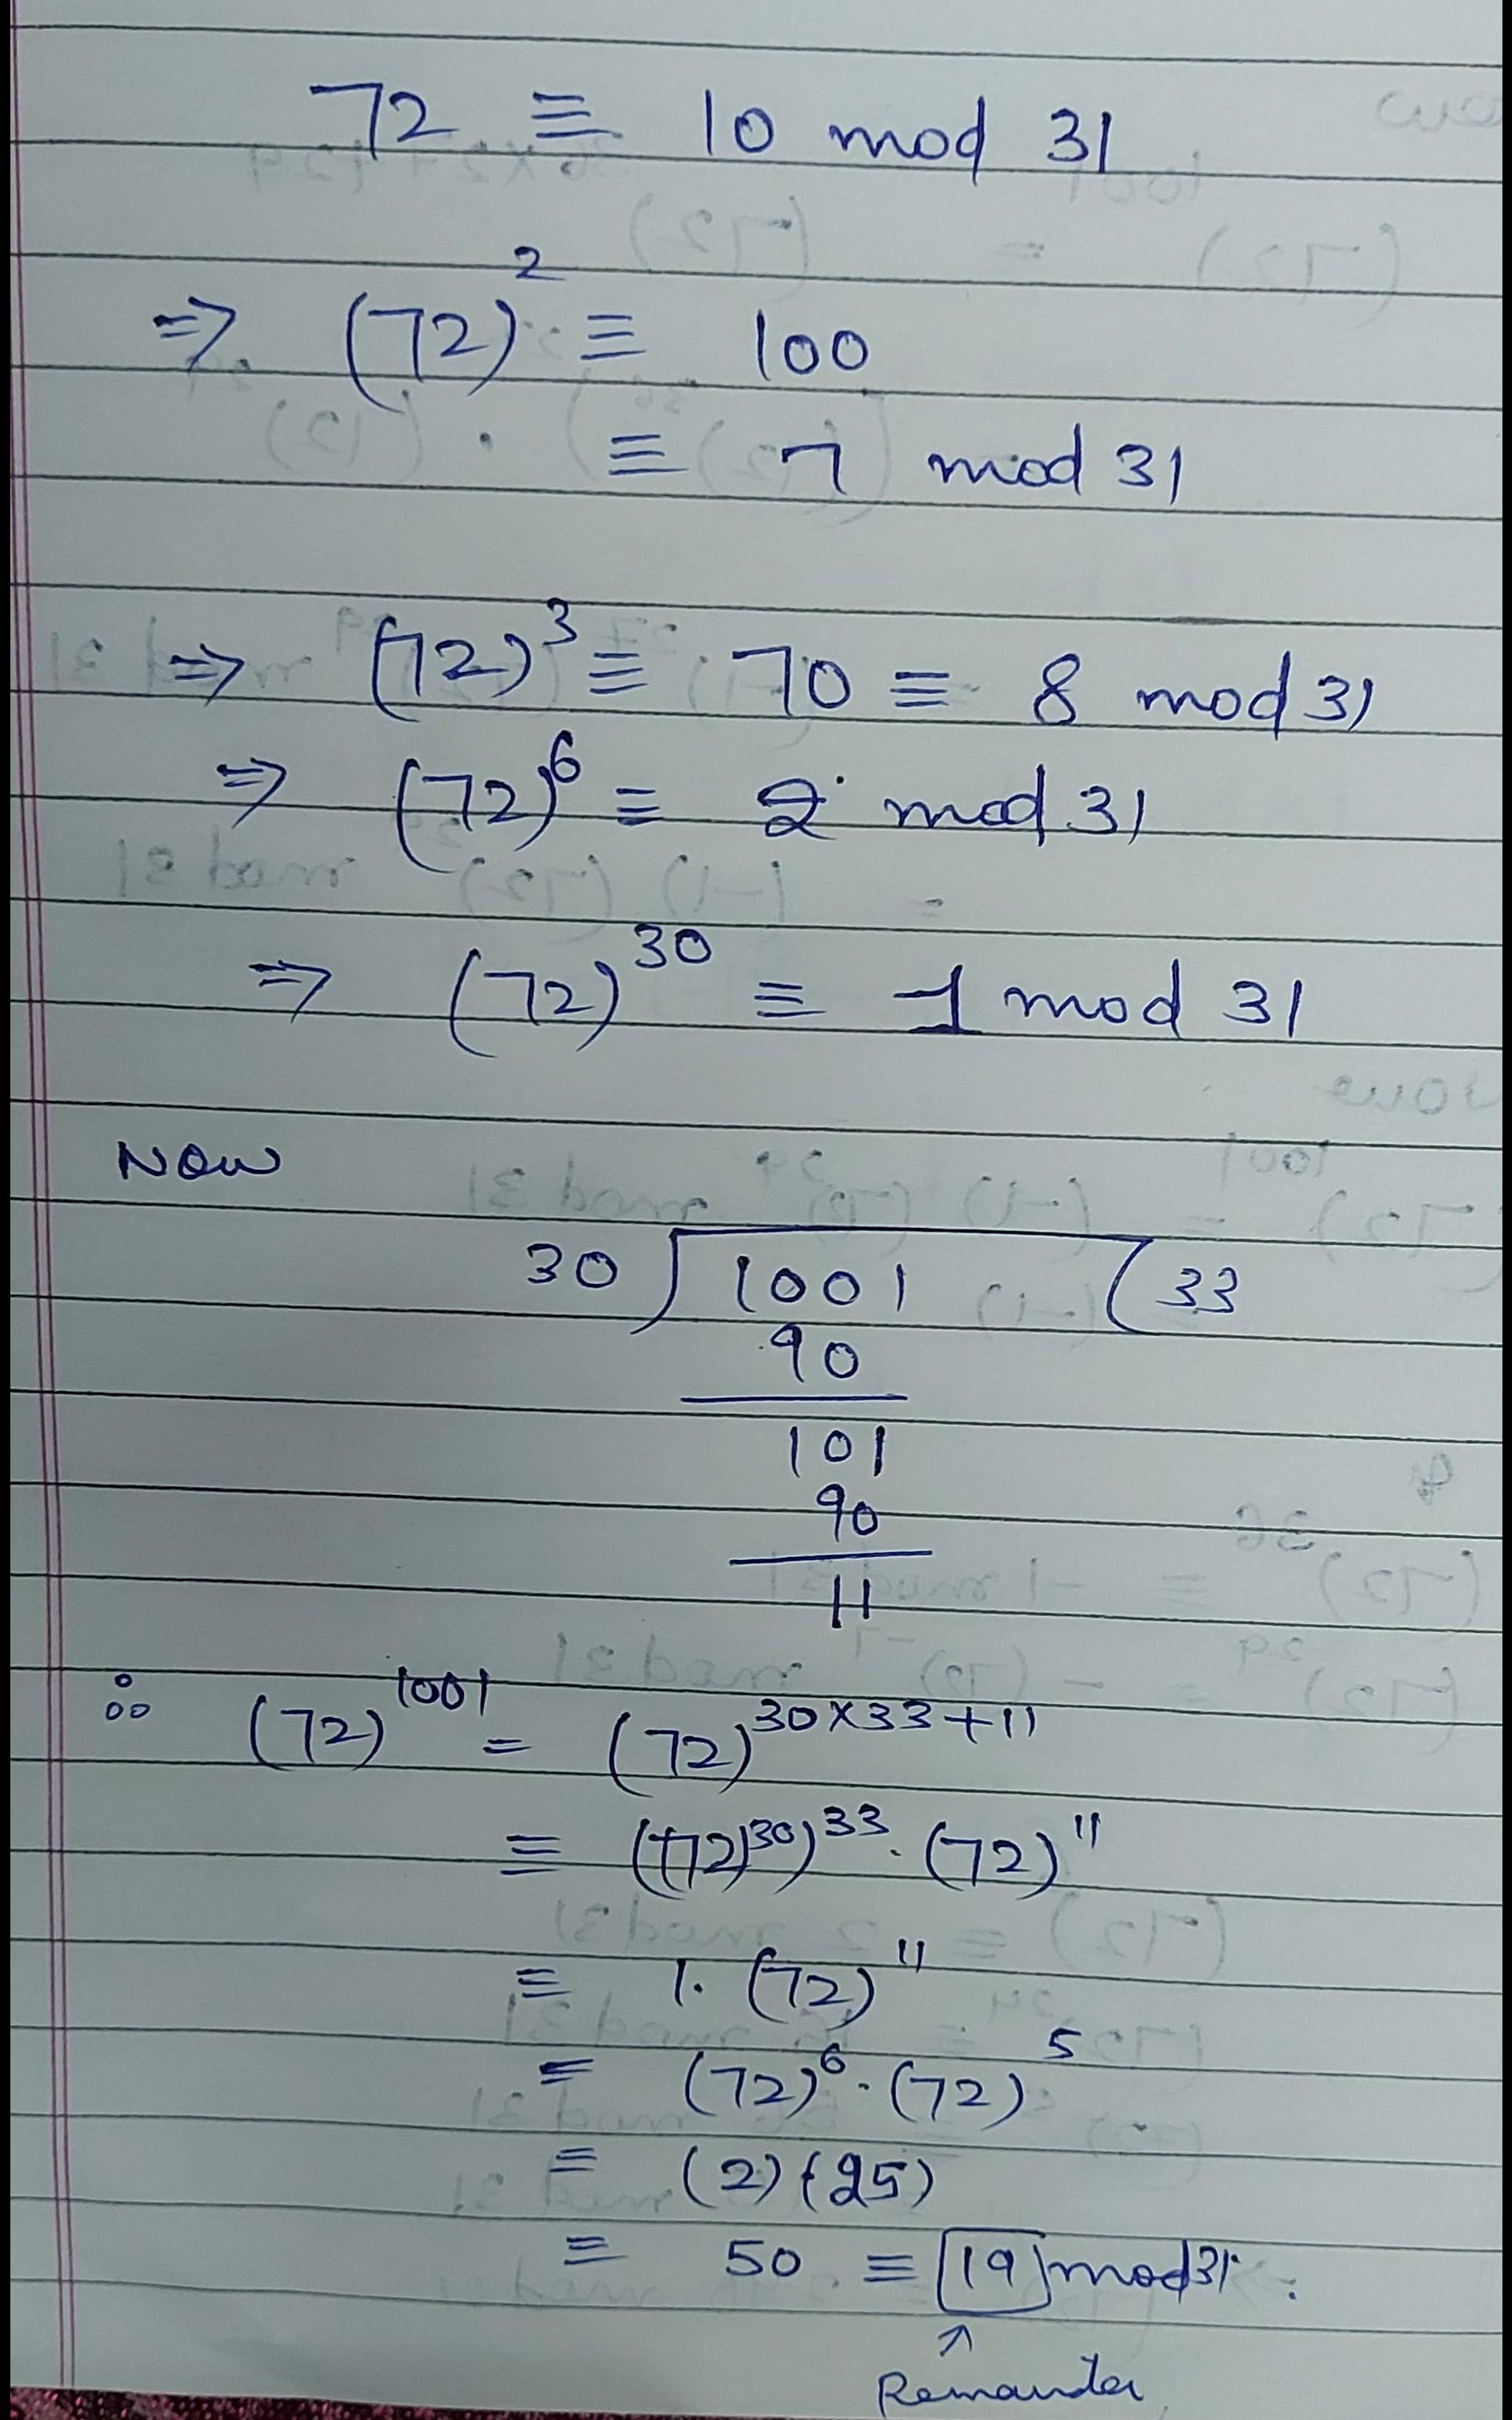 72 ≡ 10 mod 31
⇒ (72)² ≡ 100
≡ 7 mod 31
⇒ (72)³ ≡ 70 ≡ 8 mod 31
⇒ (72)⁶ ≡ 2 mod 31
⇒ (72)³⁰ ≡ 1 mod 31
Now
30 ) 1001 ( 33
90
101
90
11
∴ (72)¹⁰⁰¹ = (72)³⁰ˣ³³⁺¹¹
≡ ((72)³⁰)³³ . (72)¹¹
≡ 1. (72)¹¹
= (72)⁶ . (72)⁵
≡ (2) (25)
≡ 50 ≡ 19 mod 31 .
↑
Remainder